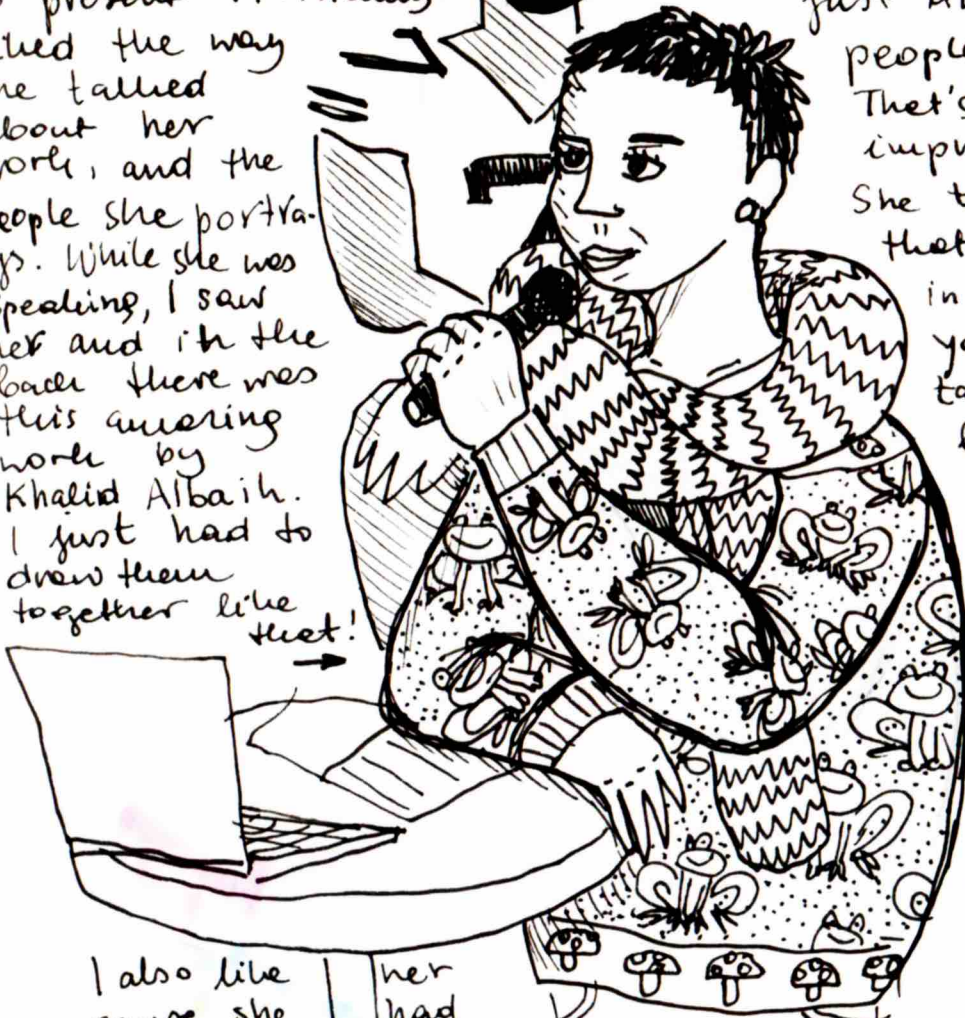 present
liked the way
he talked
about her
work, and the
eople she portra-
ys. While she was
peaking, I saw
her and in the
back there was
this amazing
work by
Khalid Albaih.
I just had to
draw them
together like
that!
just
people
That's
impr
She t
that
in
I also like her
she had